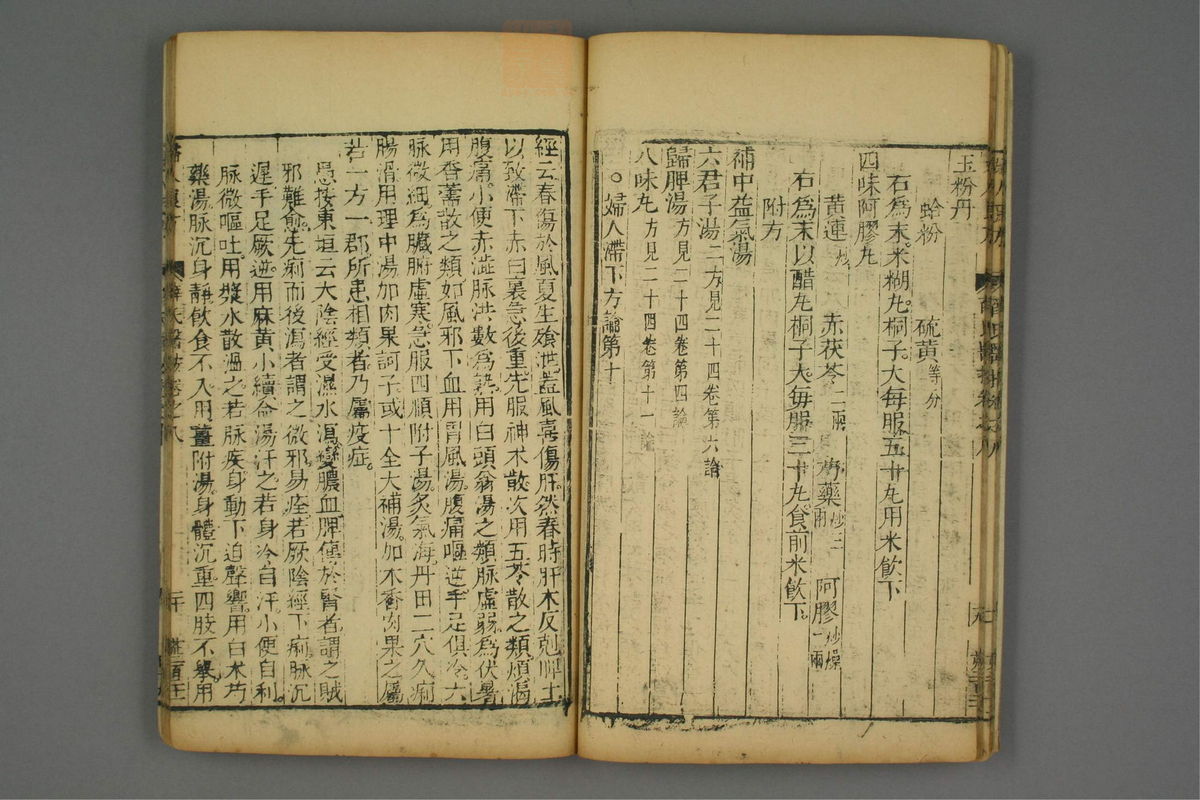 玉粉丹
蛤粉 硫黄等分
右爲末米糊丸桐子大每服五十丸用米飲下
四味阿膠丸
黄連炒 赤茯苓二兩 芍藥炒三兩 阿膠炒燥一兩
右爲末以醋丸桐子大每服三十丸食前米飲下
附方
補中益氣湯
六君子湯二方見二十四卷第六論
歸脾湯方見二十四卷第四論
八味丸方見二十四卷第十一論
○婦人滯下方論第十
經云春傷於風夏生飱泄蓋風喜傷肝然春時肝木反剋脾土
以致滯下赤白裏急後重先服神术散次用五苓散之類煩渴
腹痛小便赤澁脉洪數爲熱用白頭翁湯之類脉虛弱爲伏暑
用香薷散之類如風邪下血用胃風湯腹痛嘔逆手足俱冷六
脉微細爲臟腑虛寒急服四順附子湯炙氣海丹田二穴久痢
腸滑用理中湯加肉果訶子或十全大補湯加木香肉果之屬
若一方一郡所患相類者乃屬疫症
愚按東垣云太陰經受濕水瀉變膿血脾傳於腎者謂之賊
邪難愈先痢而後瀉者謂之微邪易痊若厥陰經下痢脉沉
遲手足厥逆用麻黄小續命湯汗之若身冷自汗小便自利
脉微嘔吐用漿水散温之若脉疾身動下迫聲響用白术芍
藥湯脉沉身靜飲食不入用薑附湯身體沉重四肢不舉用